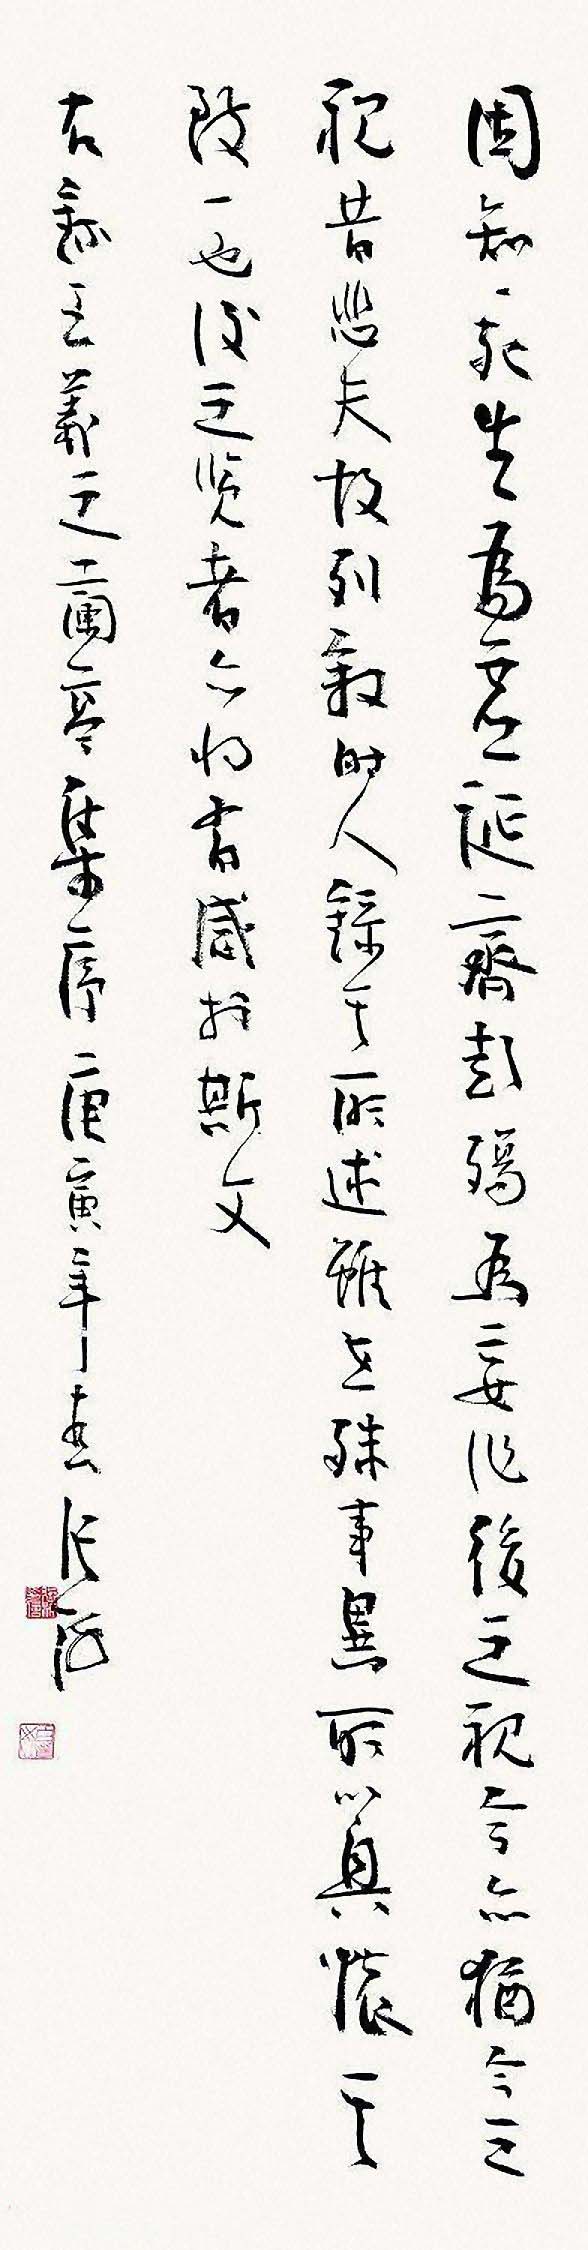 固知一死生為虛誕齊彭殤為妄作後之視今亦猶今之
視昔悲夫故列敘時人錄其所述雖世殊事異所以興懷其
致一也後之覽者亦將有感於斯文
右錄王羲之蘭亭集序庚寅年春張